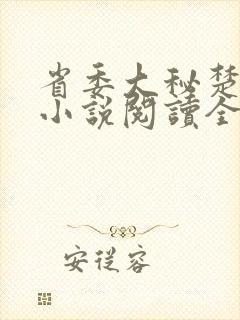 省委大秘楚
小說閱讀全
安從容